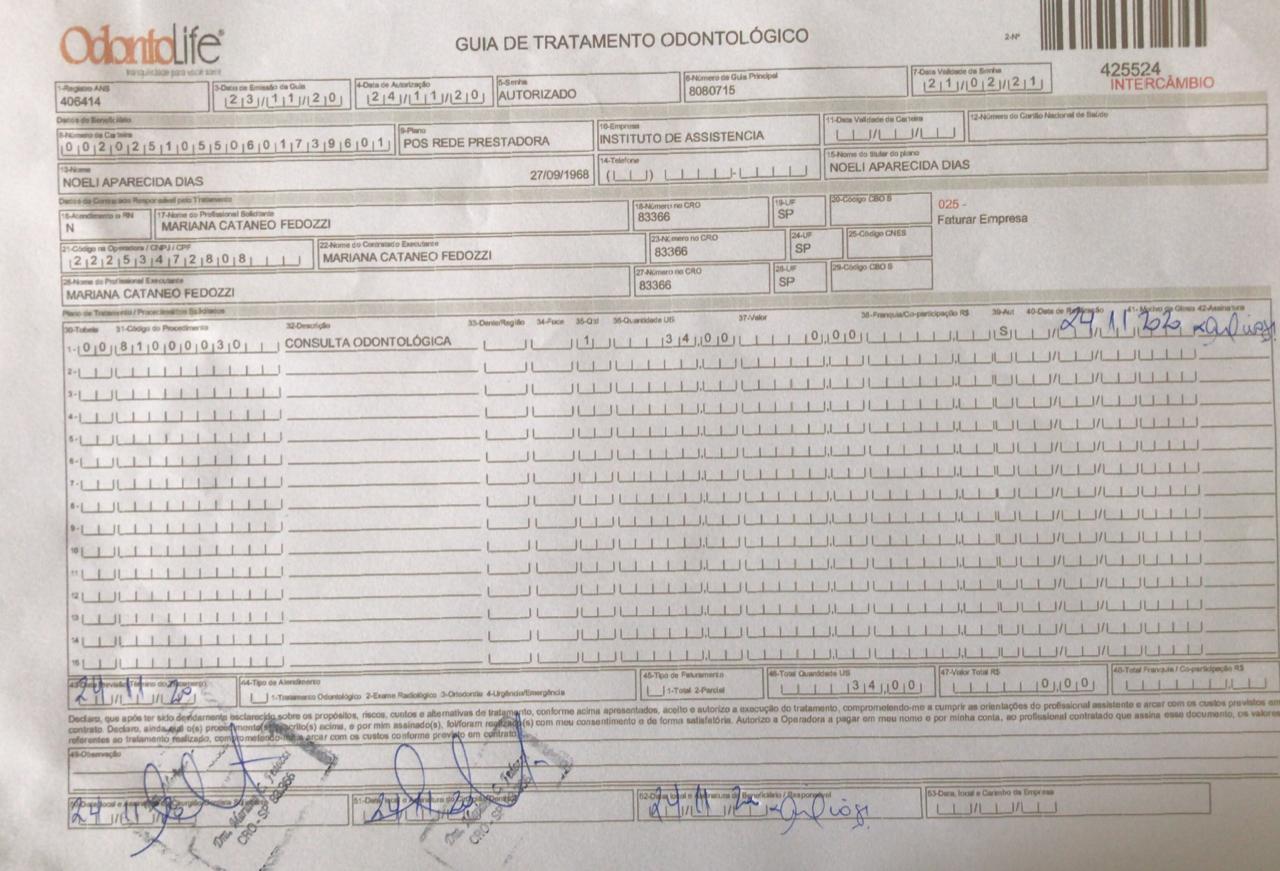 OdontoLife®
tranquilidade para você sorrir
GUIA DE TRATAMENTO ODONTOLÓGICO
2-Nº
425524
INTERCÂMBIO
1-Registro ANS
406414
3-Data de Emissão da Guia
23/11/20
4-Data de Autorização
24/11/20
5-Senha
AUTORIZADO
6-Número da Guia Principal
8080715
7-Data Validade da Senha
21/02/21
Dados do Beneficiário
8-Número da Carteira
00202510550601739601
9-Plano
POS REDE PRESTADORA
10-Empresa
INSTITUTO DE ASSISTENCIA
11-Data Validade da Carteira
12-Número do Cartão Nacional de Saúde
13-Nome
NOELI APARECIDA DIAS 27/09/1968
14-Telefone
15-Nome do titular do plano
NOELI APARECIDA DIAS
Dados do Contratado Responsável pelo Tratamento
16-Atendimento a RN
N
17-Nome do Profissional Solicitante
MARIANA CATANEO FEDOZZI
18-Número no CRO
83366
19-UF
SP
20-Código CBO S
025 -
Faturar Empresa
21-Código na Operadora / CNPJ / CPF
22253472808
22-Nome do Contratado Executante
MARIANA CATANEO FEDOZZI
23-Número no CRO
83366
24-UF
SP
25-Código CNES
26-Nome do Profissional Executante
MARIANA CATANEO FEDOZZI
27-Número no CRO
83366
28-UF
SP
29-Código CBO S
Plano de Tratamento / Procedimentos Solicitados
30-Tabela 31-Código do Procedimento 32-Descrição 33-Dente/Região 34-Face 35-Qtd 36-Quantidade US 37-Valor 38-Franquia/Co-participação R$ 39-Aut 40-Data de Realização 41-Motivo da Glosa 42-Assinatura
1- 00 81000030 CONSULTA ODONTOLÓGICA 1 34,00 0,00 S 24/11/2020
2-
3-
4-
5-
6-
7-
8-
9-
10
11
12
13
14
15
24/11/20
44-Tipo de Atendimento
1-Tratamento Odontológico 2-Exame Radiológico 3-Ortodontia 4-Urgência/Emergência
45-Tipo de Faturamento
1-Total 2-Parcial
46-Total Quantidade US
34,00
47-Valor Total R$
0,00
48-Total Franquia / Co-participação R$
Declaro, que após ter sido devidamente esclarecido sobre os propósitos, riscos, custos e alternativas de tratamento, conforme acima apresentados, aceito e autorizo a execução do tratamento, comprometendo-me a cumprir as orientações do profissional assistente e arcar com os custos previstos em
contrato. Declaro, ainda que o(s) procedimento(s) descrito(s) acima, e por mim assinado(s), foi/foram realizado(s) com meu consentimento e de forma satisfatória. Autorizo a Operadora a pagar em meu nome e por minha conta, ao profissional contratado que assina esse documento, os valores
referentes ao tratamento realizado, comprometendo-me a arcar com os custos conforme previsto em contrato.
49-Observação
24/11/20
24/11/20
52-Data, local e Assinatura do Beneficiário / Responsável
24/11/20
53-Data, local e Carimbo da Empresa
CRO - SP 83366
CRO - SP